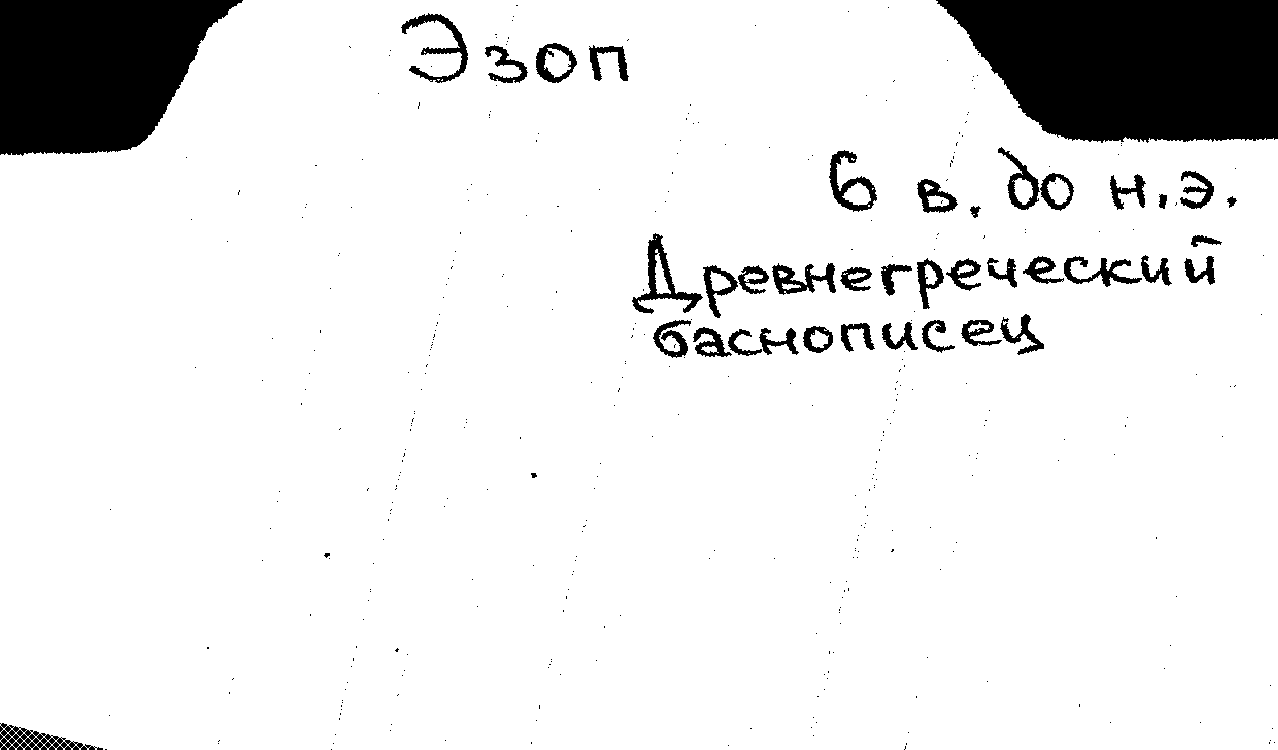 Эзоп
6 в. до н.э.
Древнегреческий
баснописец